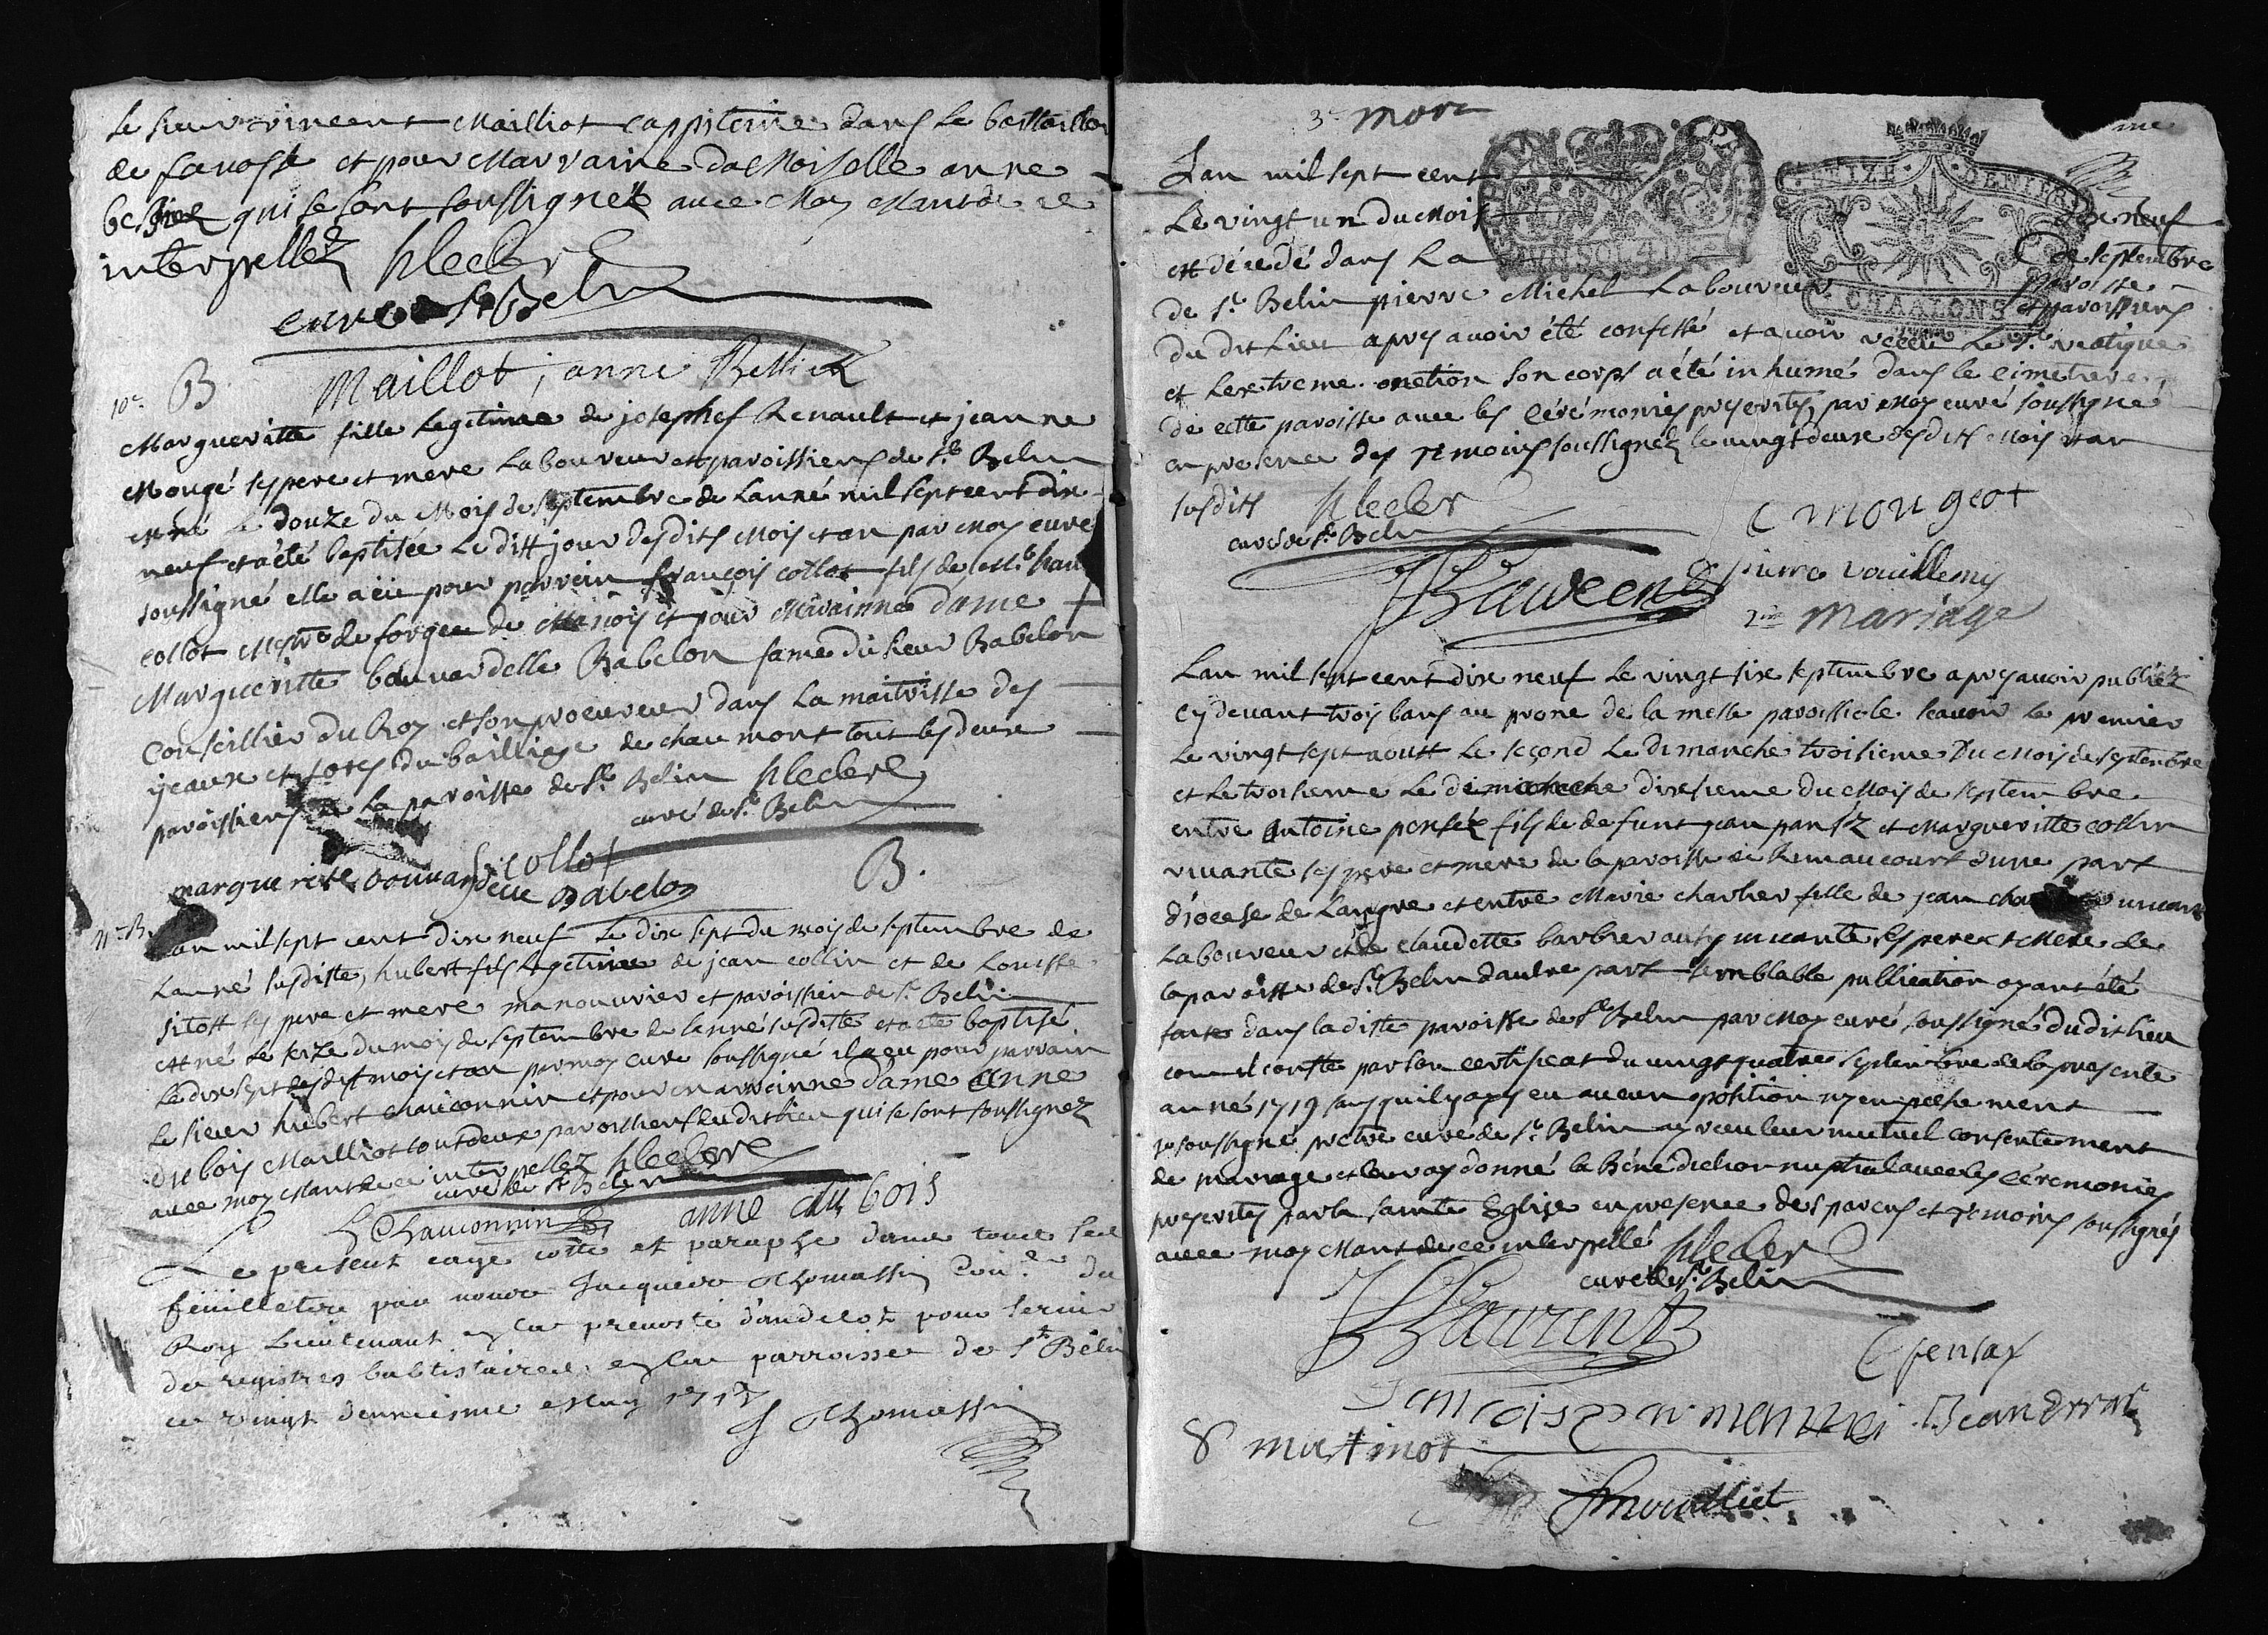 Le sieur vincent Mailliot cappiteine dans le battaillon
de et pour Marraine damoiselle anne
qui se sont soussignez avec Moy Mant de ce
interpellez Hlecler
curé de St Belin
Maillot, anne
10e B
Margueritte fille legitime de josephef Renault et jeanne
Mougé ses pere et mere Laboureur et paroissiens de St Belin
est né le douze du Mois de septembre de Lanné mil sept cent dix
neuf et a été baptisée Le ditt jour desdits Mois et an par Moy curé
soussigné elle a eü pour parrein françois collot fils de Mr
collot Mestre de forges de Manois et pour Maraine dame
Margueritte bouvardelle Babelon fame du sieur Babelon
Conseillier du Roy et son procureur dans La maitrisse des
eaux et fores du bailliage de chaumont tout les deux
paroissiens de La paroisse de St Belin Hleclere
curé de St Belin
f collot
marguerite bouuardelle Babelon
B.
11e B.
Lan mil sept cent dix neuf Le dix sept du mois de septembre de
Lanné susditte, hubert fils Legitime de jean collin et de Louisse
sitott ses pere et mere manouvrier et paroissien de St Belin
est né le seize du mois de septembre de lanné susditte et a été baptisé
Le dix sept desdit mois et an par moy curé soussigné il a eu pour parrain
Le sieur hubert chauconnin et pour marrainne dame anne
du bois Mailliot tout deux paroissiens du dit lieu qui se sont soussignez
avec moy Mant de ce interpellez Hleclere
curé de St Belin
h Chauconnin anne du bois
Le present caye cotte et paraphe dune toute seul
feuilletere par nous Jacques Thomassin Con.er du
Roy Lieutenant en la prevosté dandelot pour servir
de registres babtistaires en la parroisse de St Belin
ce vingt deuxiesme May 1717
J Thomassin
3e mort
Lan mil sept cent dix neuf
Le vingt un du Mois de septembre
est décedé dans La paroisse
de St Belin pierre Michel Laboureur et paroissiens
du dit Lieu apres avoir été confessé et avoir reçeu Le St viatique
et Lextreme onction son corps a été inhumé dans le cimetiere
de cette paroisse avec les Cérémonies prescrites, par moy curé soussigné
en presence des témoins soussignez le vingt deux desdits Mois et an
susdits Hlecler
curé de St Belin
C mougeot
pierre vouillemy
2me Mariage
Lan mil sept cent dix neuf Le vingt six septembre apres avoir publiéz
Cy devant trois bans au prone de la messe paroissiale scavoir Le premier
Le vingt sept aoust Le second Le dimanche troisieme du Mois de septembre
et Le troisieme Le dimanche dixsieme du Mois de septembre
entre Antoine pensez fils de defunt jean et Margueritte collin
vivante ses pere et mere de la paroisse de Rimaucourt dune part
diocese de Langre et entre Marie charlier fille de jean vivant
Laboureur et de claudette barbier aussy vivante ses pere et Mere de
la paroisse de St Belin dautre part semblable publication ayant été
faite dans laditte paroisse de St Belin par Moy curé soussigné dudit lieu
com il conste par son certificat du vingt quatre septembre de la presente
anné 1719 sans quil y aye eu aucun oposition ny empechement
je soussigné pretre curé de St Belin ay reeu leur mutuel consentement
de mariage et leur ay donné la Bénédiction nuptial avec les Céremonies
prescrites par la sainte Eglise en presence des parens et témoins soussignés
avec moy Mant de ce interpellé Hlecler
curé de St Belin
Laurent
C pensay
jean
martinot
mouilliet
SEIZE DENIERS
CHAALONS